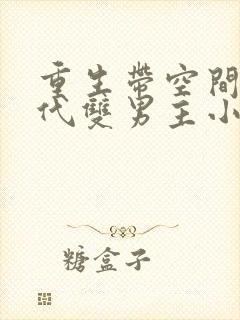 重生帶空間
代雙男主小
糖盒子